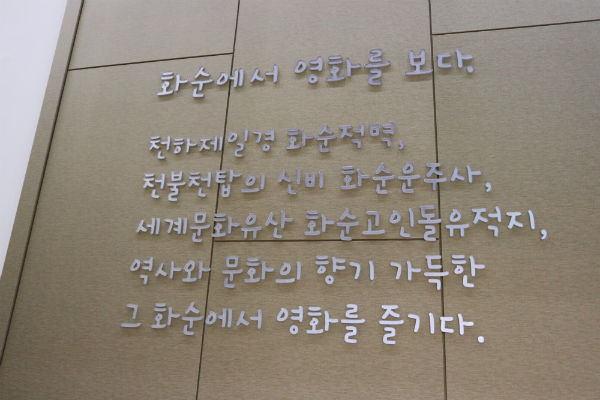 화순에서 영화를 보다.
천하제일경 화순적벽,
천불천탑의 신비 화순운주사,
세계문화유산 화순고인돌유적지,
역사와 문화의 향기 가득한
그 화순에서 영화를 즐기다.